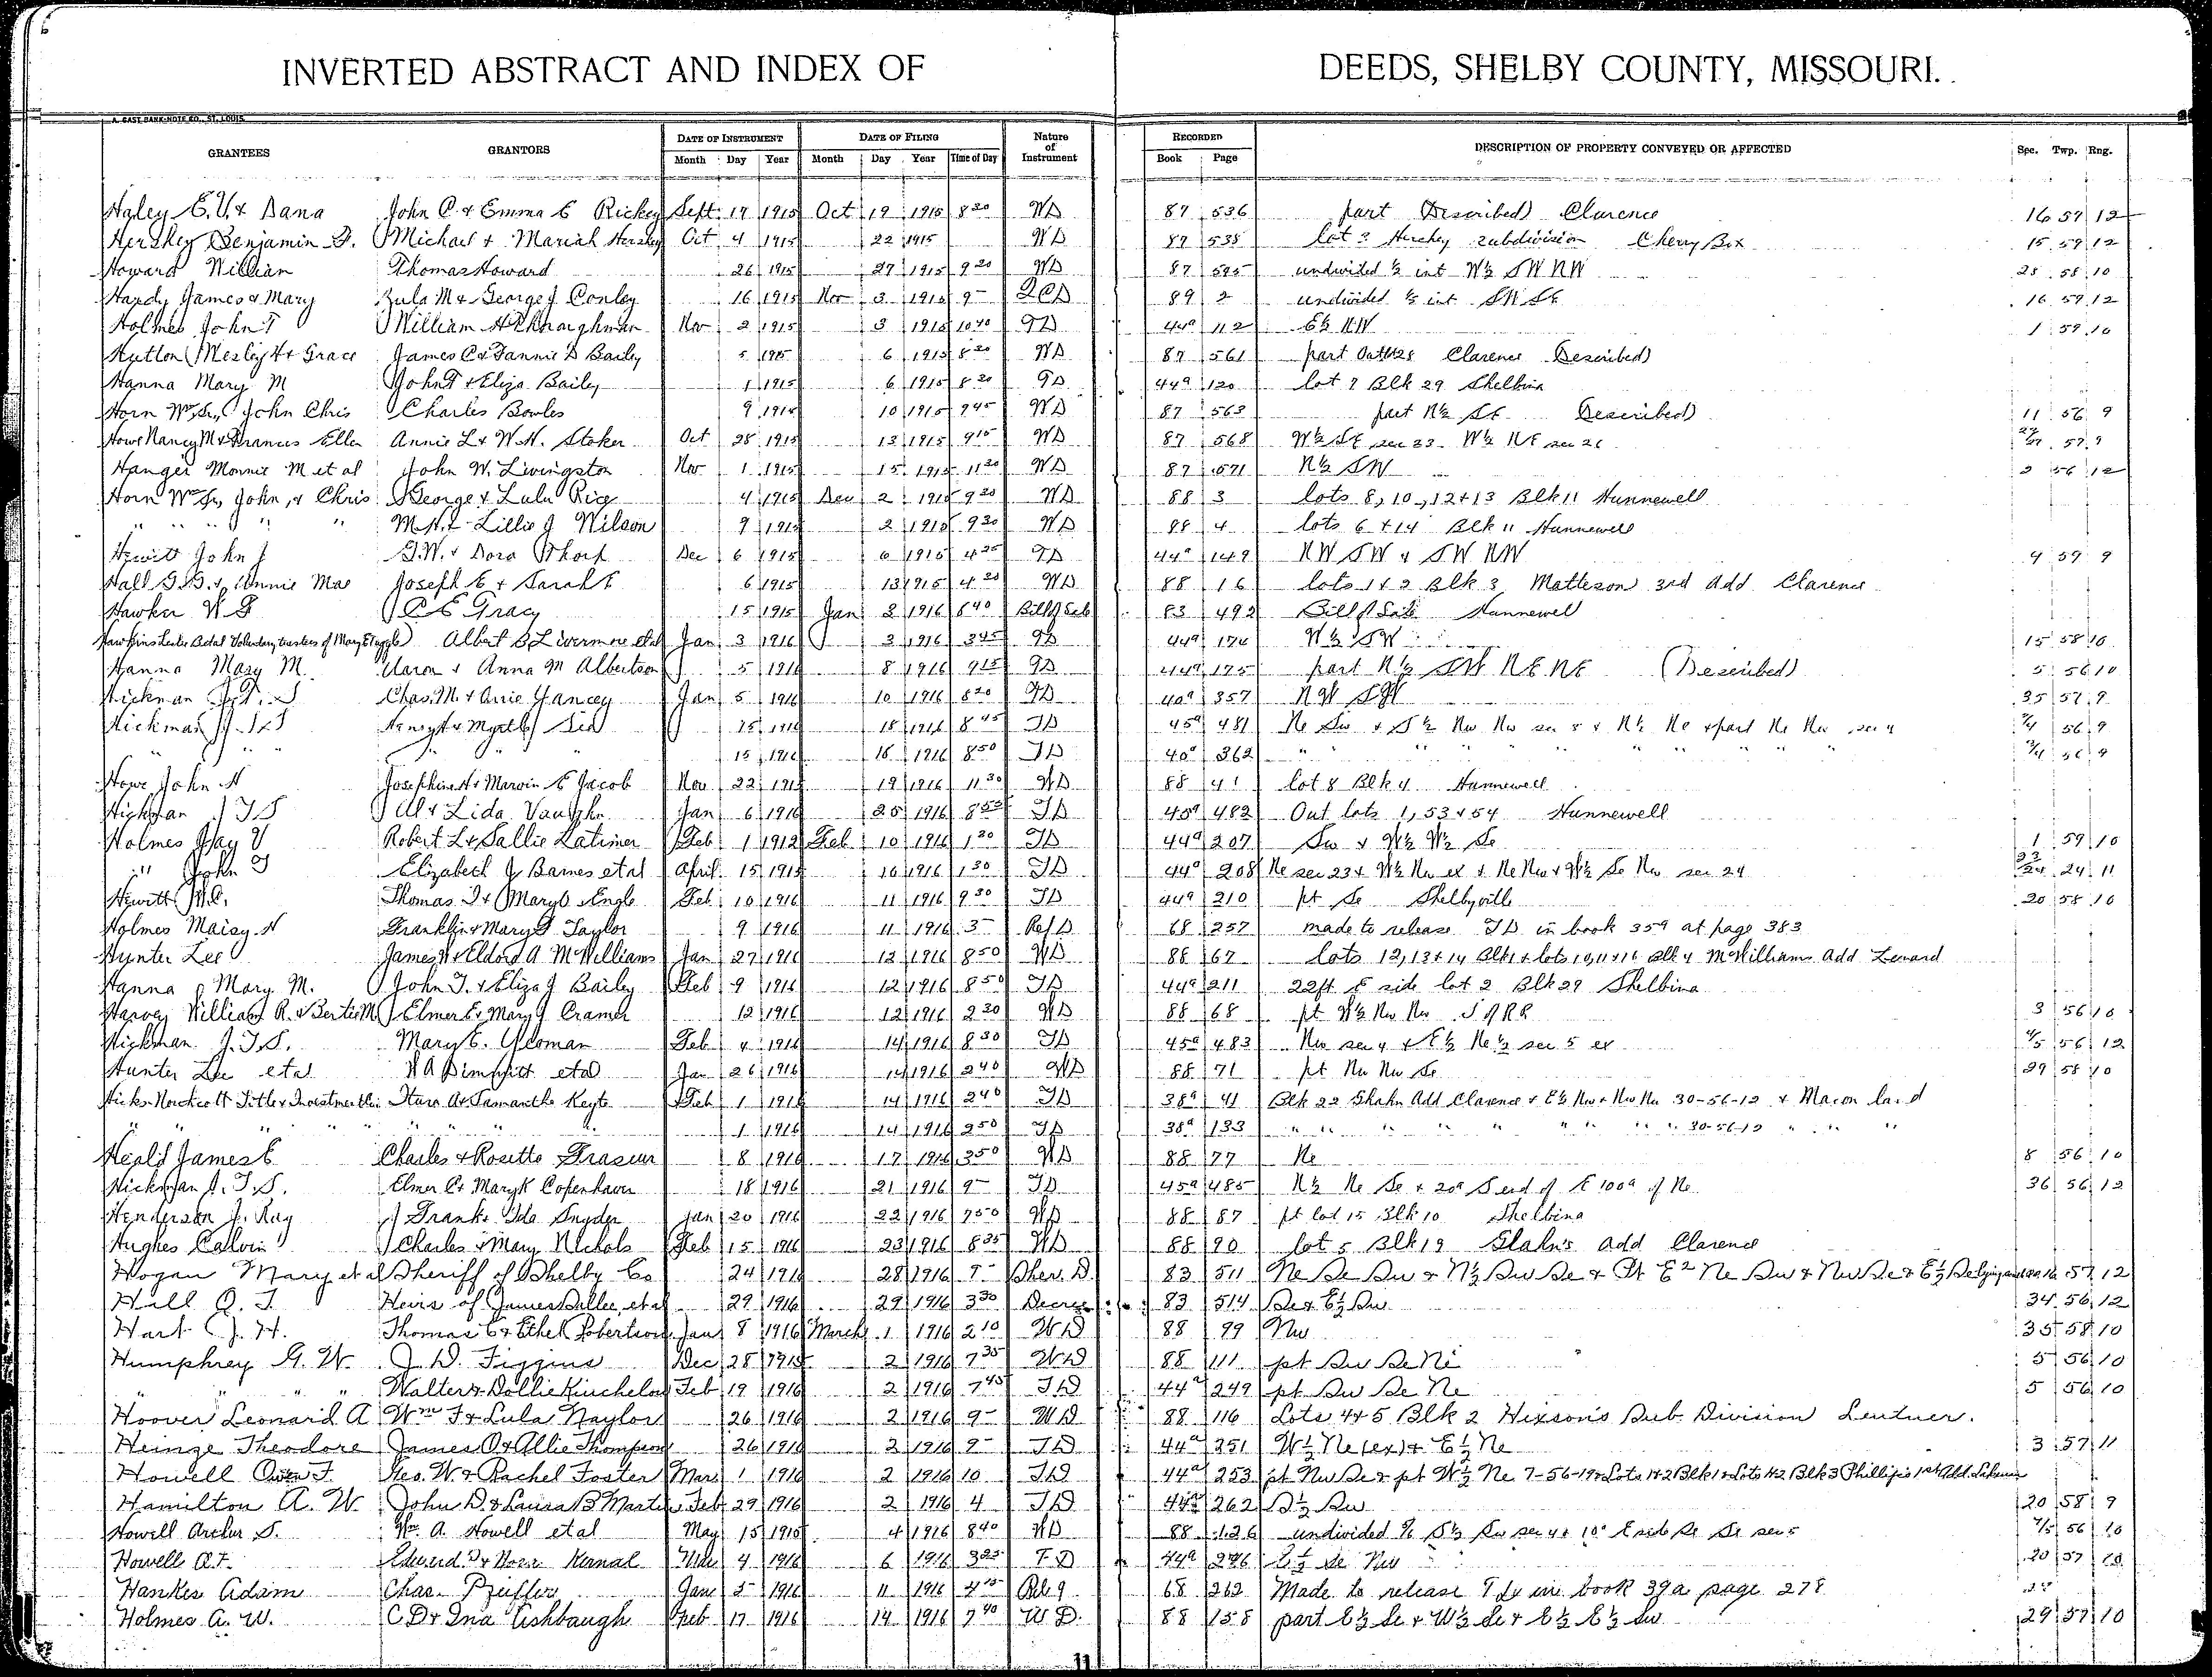 INVERTED ABSTRACT AND INDEX OF DEEDS, SHELBY COUNTY, MISSOURI.
A. GAST BANK-NOTE CO., ST. LOUIS.
GRANTEES GRANTORS DATE OF INSTRUMENT DATE OF FILING Nature of Instrument RECORDED DESCRIPTION OF PROPERTY CONVEYED OR AFFECTED Sec. Twp. Rng.
Month Day Year Month Day Year Time of Day Book Page
Haley E.V. & Dana John C. & Emma E Rickey Sept 17 1915 Oct 19 1915 8 20 WD 87 536 part Described) Clarence 16 57 12
Hershey Benjamin F. Michael & Mariah Hershey Oct 4 1915 22 1915 WD 87 538 lot 3 Hershey subdivision Cherry Box 15 59 12
Howard William Thomas Howard 26 1915 27 1915 9 20 WD 87 545 undivided ½ int W½ SW NW 28 58 10
Handy James & Mary Zula M & George J Conley 16 1915 Nov 3 1915 9 - QCD 89 2 undivided ⅓ int SW SE 16 59 12
Holmes John T William H Nov 2 1915 3 1915 10 40 TD 44a 112 E½ NW 1 59 10
Hutton Wesley H & Grace James C & Fannie D Bailey 5 1915 6 1915 8 20 WD 87 561 part Outlt 28 Clarence Described)
Hanna Mary M John T & Eliza Bailey 1 1915 6 1915 8 20 TD 44a 120 lot 2 Blk 29 Shelbina
Horn Wm Sr., John Chris Charles Bowles 9 1915 10 1915 9 45 WD 87 563 part N½ SE Described) 11 56 9
Howe Nancy M & Frances Ellen Annie L & W.H. Stoker Oct 28 1915 13 1915 9 15 WD 87 568 W½ SE sec 23 W½ NE sec 26 57 9
Hanger Monnie M et al John W. Livingston Nov 1 1915 15 1915 11 20 WD 87 571 N½ SW 3 56 12
Horn Wm Sr, John, & Chris George & Lulu Rice 4 1915 Dec 2 1915 9 20 WD 88 3 lots 8, 10, 12 & 13 Blk 11 Hunnewell
" " " " " M.H. & Lillie J Wilson 9 1915 2 1915 9 20 WD 88 4 lots 6 & 14 Blk 11 Hunnewell
Hewitt John J G.W. & Dora Thorp Dec 6 1915 6 1915 4 25 TD 44a 149 NW SW & SW NW 4 59 9
Hall G.G. & Annie Mae Joseph E & Sarah E 6 1915 13 1915 4 20 WD 88 16 lots 1 & 2 Blk 3 Matteson 3rd Add Clarence
Hawker W S C E Gracy 15 1915 Jan 3 1916 8 40 Bill of Sale 83 492 Bill of Sale Hunnewell
Albert B Livermore et al Jan 3 1916 3 1916 3 45 TD 44a 174 W½ SW 15 58 10
Hanna Mary M. Aaron & Anna M Albertson 5 1916 8 1916 9 15 TD 44a 175 part N½ SW NE NE (Described) 5 56 10
Hickman J.T.S Chas. M. & Arrie Yancey Jan 5 1916 10 1916 8 20 TD 40a 357 NW SW 35 57 9
Hickman J.T.S Henry & Myrtle 15 1916 18 1916 8 45 TD 45a 481 Ne Sw & S½ Nw Nw sec 5 & N½ Ne & part Ne Nw sec 4 56 9
" " " " " 15 1916 18 1916 8 50 TD 40a 362 " " " " " " " " 56 9
Howe John H Josephine H & Marvin E Jacob Nov 22 1915 19 1916 11 30 WD 88 41 lot 8 Blk 4 Hunnewell
Hickman J T S Al & Lida Vaughn Jan 6 1916 25 1916 8 50 TD 45a 482 Out lots 1, 53 & 54 Hunnewell
Holmes Jay V Robert L & Sallie Latimer Feb 1 1912 Feb 10 1916 1 30 TD 44a 207 Sw & W½ W½ Se 1 59 10
" John T Elizabeth J Barnes et al April 15 1915 10 1916 1 30 TD 44a 208 Ne sec 23 & W½ Nw ex & Ne Nw & W½ Se Nw sec 24 23/24 24 11
Hewitt M.C. Thomas I & Mary E Engle Feb 10 1916 11 1916 9 30 TD 44a 210 pt Se Shelbyville 20 58 10
Holmes Maisy H Franklin & Mary J Taylor 9 1916 11 1916 3 - Rel D 68 257 made to release TD in book 35a at page 383
Hunter Lee James W & Eldora A McWilliams Jan 27 1916 12 1916 8 50 WD 88 67 lots 12, 13 & 14 Blk 1 & lots 10, 11 & 16 Blk 4 McWilliams Add Lenard
Hanna Mary M. John T. & Eliza J Bailey Feb 9 1916 12 1916 8 50 TD 44a 211 22ft E side lot 2 Blk 29 Shelbina
Harvey William R. & Bertie M Elmer E & Mary J Cramer 12 1916 12 1916 2 30 WD 88 68 pt W½ Nw Nw S of RR 3 56 10
Hickman J.T.S. Mary E. Yeoman Feb 4 1916 14 1916 8 30 TD 45a 483 Nw sec 4 & E½ Ne½ sec 5 ex 4/5 56 12
Hunter Lee et al W A Dimmitt et al Jan 26 1916 14 1916 2 40 WD 88 71 pt Nw Nw Se 29 58 10
Hicks-Northcott Title & Investment Co. A & Samantha Keyte Feb 1 1916 14 1916 2 40 TD 38a 41 Blk 22 Shahn Add Clarence & E½ Nw & Nw Nw 30-56-12 & Macon land
" " " " " " " 1 1916 14 1916 2 50 TD 38a 133 " " " " " " " 30-56-12 " " "
Heald James E Charles & Rosetta Frasur 8 1916 17 1916 3 50 WD 88 77 Ne 8 56 10
Hickman J.T.S. Elmer C & Mary K Copenhaver 18 1916 21 1916 9 - TD 45a 485 N½ Ne Se & 20a S end of E 100a of Ne 36 56 12
Henderson J. Ray J Frank & Ida Snyder Jan 20 1916 22 1916 7 50 WD 88 87 pt lot 15 Blk 10 Shelbina
Hughes Calvin Charles & Mary Nichols Feb 15 1916 23 1916 8 35 WD 88 90 lot 5 Blk 19 Slahn's Add Clarence
Hogan Mary et al Sheriff of Shelby Co 24 1916 28 1916 9 - Sher. D. 83 511 Ne Se Sw & N½ Sw Se & Pt E2 Ne Sw & Nw Se & E½ Se 57 12
Hall O. T. Heirs of James Dallee, et al 29 1916 29 1916 3 30 Decree 83 514 Se & E½ Sw 34 56 12
Hart J. H. Thomas C & Ethel Robertson Jan 8 1916 March 1 1916 2 10 WD 88 99 Nw 35 58 10
Humphrey G. W. J. D. Figgins Dec 28 1915 2 1916 7 35 WD 88 111 pt Sw Se Ne 5 56 10
" " " " Walter & Dollie Kincheloe Feb 19 1916 2 1916 7 45 TD 44a 249 pt Sw Se Ne 5 56 10
Hoover Leonard A Wm F & Lula Naylor 26 1916 2 1916 9 - WD 88 116 Lots 4 & 5 Blk 2 Hixson's Sub. Division Lentner.
Heinze Theodore James O & Allie Thompson 26 1916 2 1916 9 - TD 44a 251 W½ Ne (ex) & E½ Ne 3 57 11
Howell Owen F. Geo. W & Rachel Foster Mar 1 1916 2 1916 10 TD 44a 253 pt Nw Se & pt W½ Ne 7-56-19 & Lots 1 & 2 Blk 1 & Lots 1 & 2 Blk 3 Phillip's 1st Add.
Hamilton A. W. John D. & Laura B Martin Feb 29 1916 2 1916 4 TD 44a 262 S½ Sw 20 58 9
Howell Arthur S. Wm. A. Howell et al May 15 1915 4 1916 8 40 WD 88 126 undivided S½ Sw sec 4 & 10a E side Se Se sec 5 4/5 56 10
Howell A.F. Edward F & Nora Kernal Mar 4 1916 6 1916 3 25 TD 44a 276 E½ Se Nw 20 57 10
Hankes Adam Chas. Pfeiffer Jan 5 1916 11 1916 4 10 Rel 9 68 262 Made to release T D in book 39a page 278
Holmes A. W. C D & Ina Ashbaugh Feb 17 1916 14 1916 7 40 W D. 88 158 part E½ Se & W½ Se & E½ E½ Sw 29 57 10
11